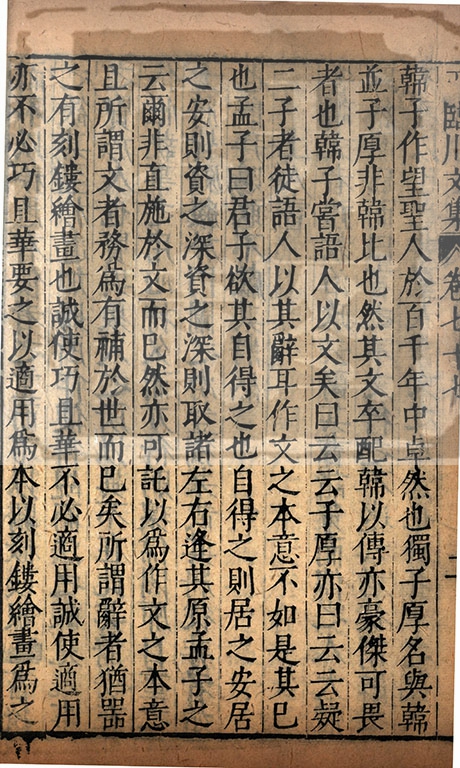 臨川文集 卷七十七
韓子作望聖人於百千年中卓然也獨子厚名與韓
並子厚非韓比也然其文卒配韓以傳亦豪傑可畏
者也韓子嘗語人以文矣曰云云子厚亦曰云云疑
二子者徒語人以其辭耳作文之本意不如是其已
也孟子曰君子欲其自得之也自得之則居之安居
之安則資之深資之深則取諸左右逢其原孟子之
云爾非直施於文而已然亦可託以爲作文之本意
且所謂文者務爲有補於世而已矣所謂辭者猶器
之有刻鏤繪畫也誠使巧且華不必適用誠使適用
亦不必巧且華要之以適用爲本以刻鏤繪畫爲之